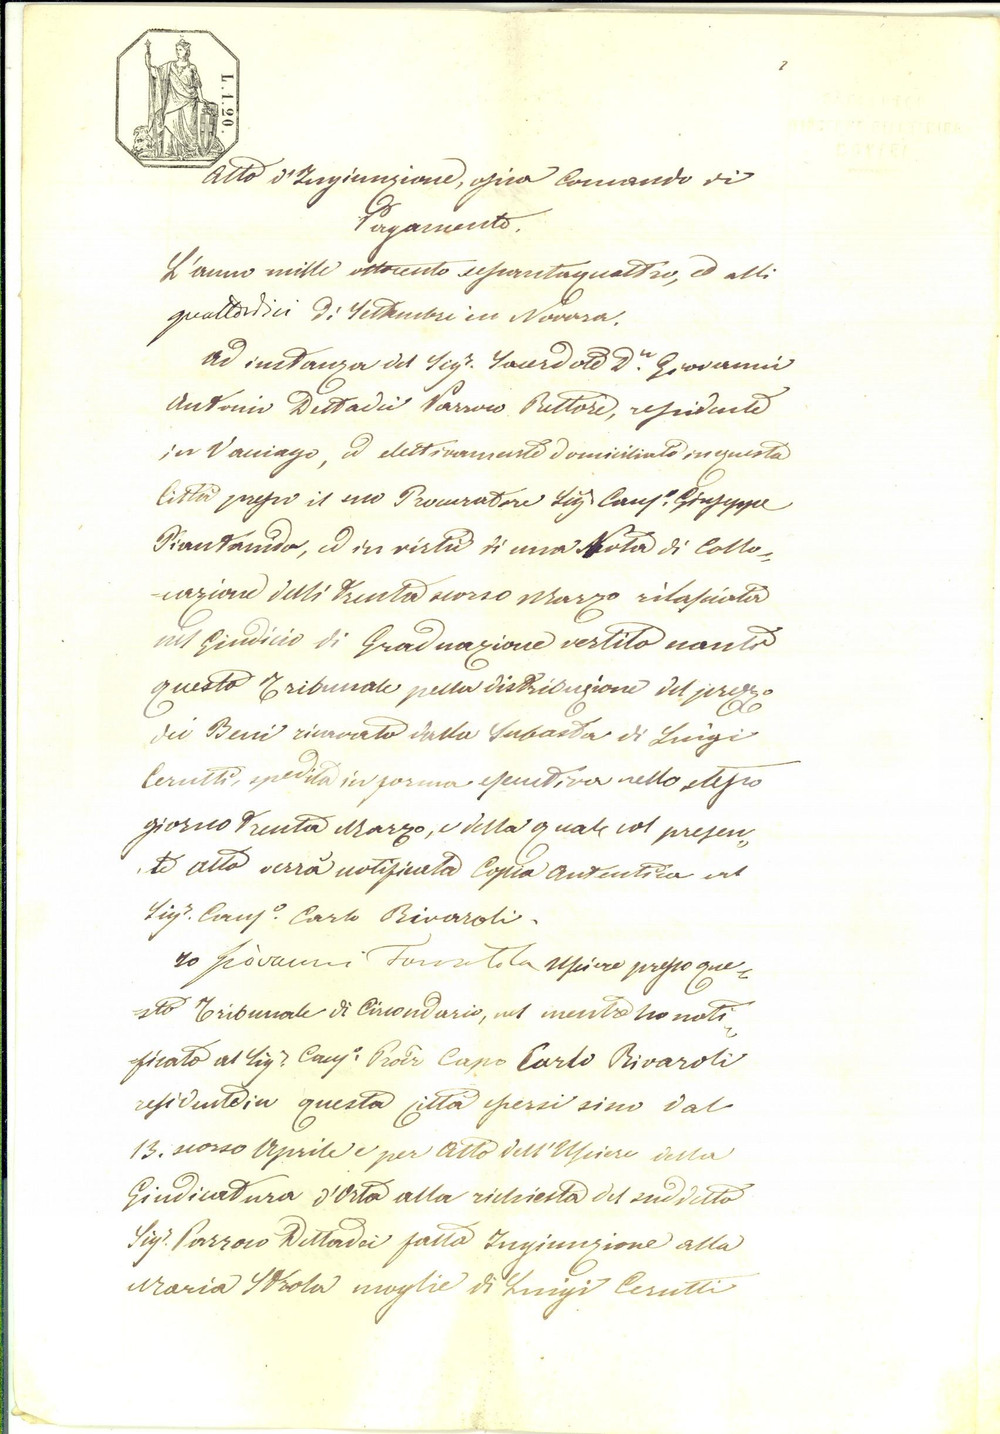 L.1.20.
Atto d'Ingiunzione, ossia Comando di
Pagamento.
L'anno mille ottocento settantaquattro, ed alli
quattordici di Settembre in Novara.
Ad instanza del Sigr. Sacerdote Dn. Giovanni
Antonio Dettadei Parroco Rettore, residente
in Vaciago, ed elettivamente domiciliato in questa
Città presso il suo Procuratore Sigr. Caus.o Giuseppe
Piantanida, ed in vista di una Nota di Collo-
-cazione delli trenta scorso Marzo rilasciata
nel Giudicio di Graduazione vertito nanti
questo Tribunale pella distribuzione del prezzo
dei Beni ricavato dalla Subasta di Luigi
Cerutti, spedita in forma esecutiva nello stesso
giorno trenta Marzo, e della quale col presen-
te atto verrà notificata Copia autentica al
Sigr. Caus.o Carlo Rivaroli.
Io Giovanni Usciere presso que-
-sto Tribunale di Circondario, nel mentre ho noti-
ficato al Sigr. Caus.o Procr. Capo Carlo Rivaroli
residente in questa città essersi sino dal
13. scorso Aprile e per atto dell'Usciere della
Giudicatura d'Orta alla richiesta del suddetto
Sigr. Parroco Dettadei fatta Ingiunzione alla
Maria moglie di Luigi Cerutti